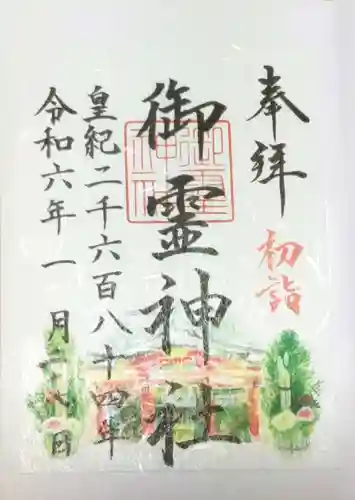 奉拝
初詣
御霊神社
皇紀二千六百八十四年
令和六年一月二八日